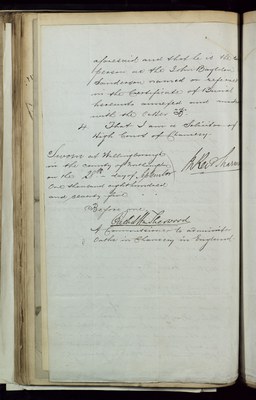 aforesaid and that he is the
person as the John
Sanderson named or referred
in the Certificate of Burial
hereunto annexed and marked
with the letter B
4. That I am a Solicitor of
High Court of Chancery
Sworn at Wellingborough
in the county of
on the 21st day of
One thousand eight hundred
and seventy five
Before me
Sherwood
A Commissioner to administer
Oaths in Chancery in England